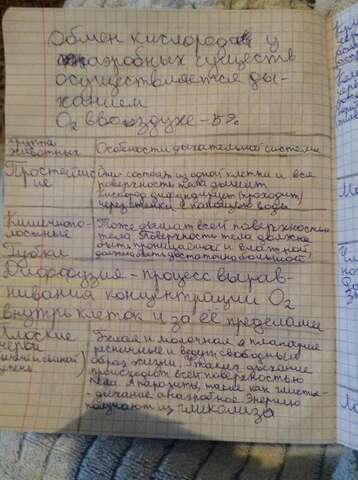 Обмен кислорода у
аэробных существ
осуществляется ды-
ханием
O₂ в воздухе -
группа
животных
Особенности дыхательной системы
Простейш
ие
Они состоят из одной клетки и вся
поверхность тела дышит
Кислород диффундирует (проходит)
через стенки с помощью воды
Кишечнопо-
лостные
Губки
Тоже дышат всей поверхностью
тела. Поверхность тела должна
быть проницаемой и влажной
должна быть достаточно большой
Диффузия - процесс вырав-
нивания концентрации O₂
внутри клеток и за её пределами
Плоские
черви
цепень
Белая и молочная планарии
ресничные и ведут свободный
образ жизни, у таких дыхание
происходит всей поверхностью
тела. А паразиты, такие как глисты
- дыхание анаэробное. Энергию
получают из гликолиза